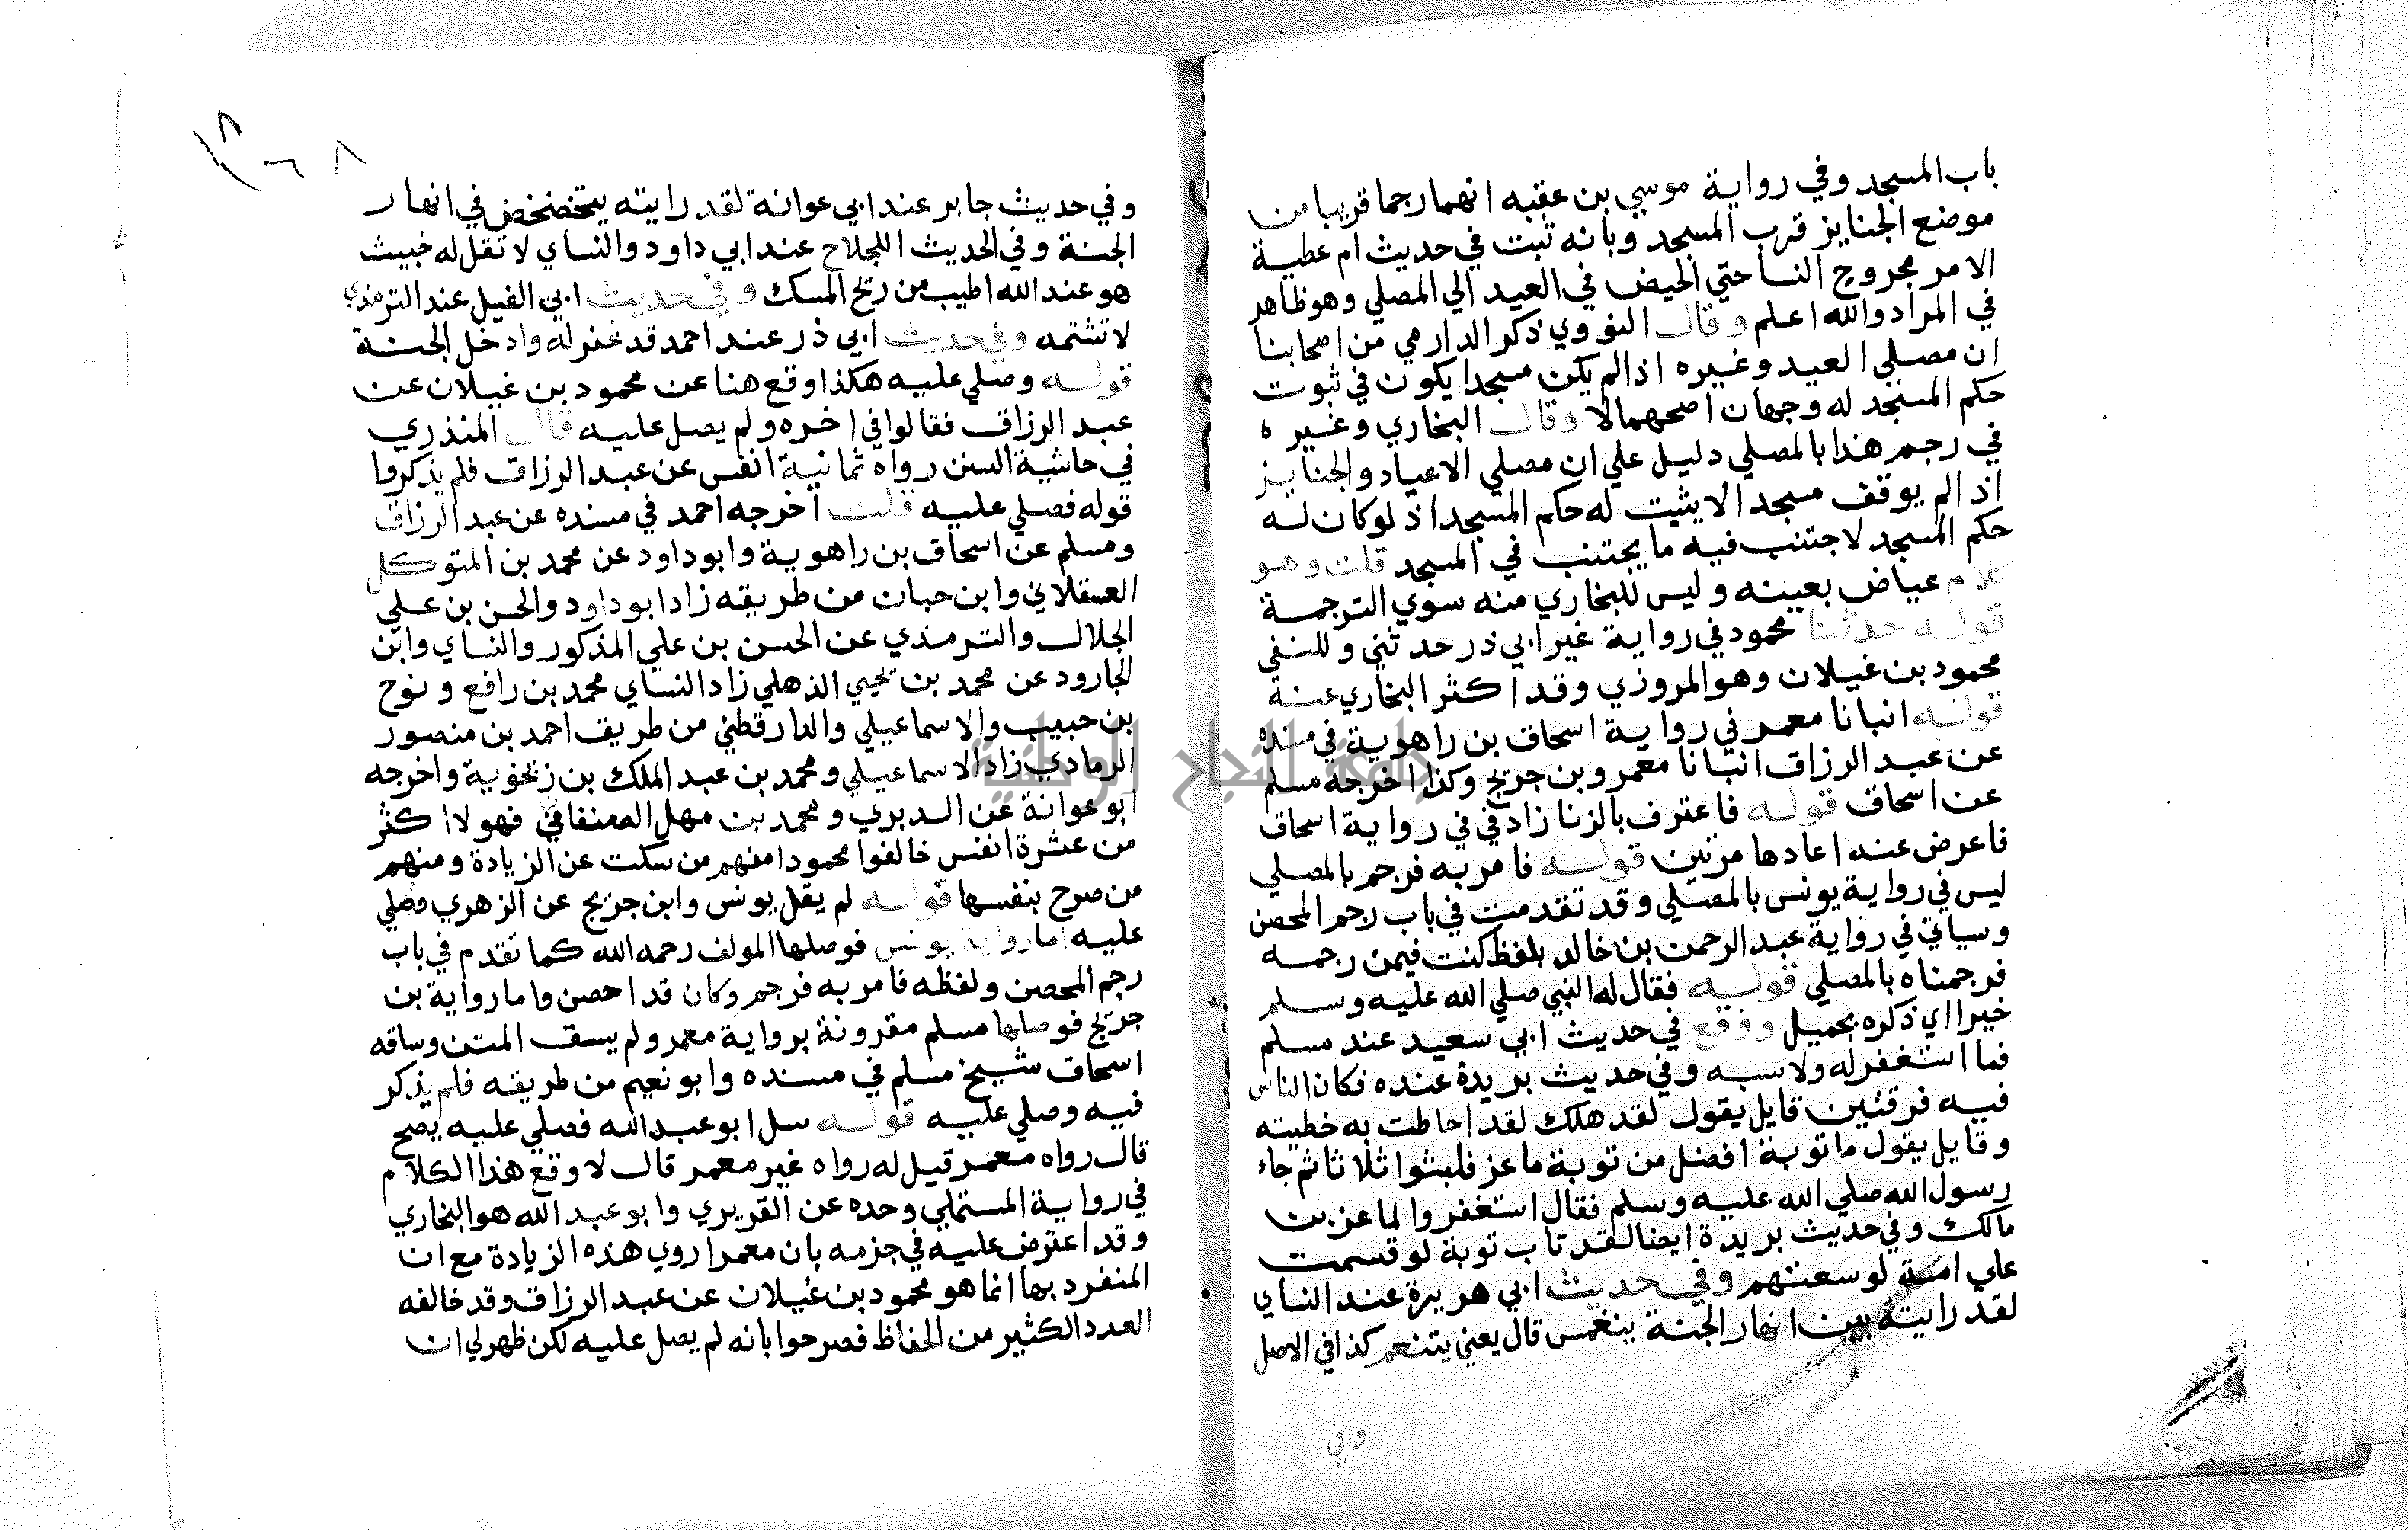 باب المسجد وفي رواية موسي بن عقبه انهما رجما قريبا من
موضع الجنايز قرب المسجد وبانه ثبت في حديث ام عطية
الامر بخروج النسا حتي الحيض في العيد الي المصلي وهو ظاهر
في المراد والله اعلم وقال النووي ذكر الدارمي من اصحابنا
ان مصلي العيد وغيره اذا لم يكن مسجدا يكون في ثبوت
حكم المسجد له وجهان اصحهما لا وقال البخاري وغيره
في رجم هذا بالمصلي دليل علي ان مصلي الاعياد والجنايز
اذا لم يوقف مسجدا لا يثبت له حكم المسجد اذ لو كان له
حكم المسجد لاجتنب فيه ما يجتنب في المسجد قلت وهو
كلام عياض بعينه وليس للبخاري منه سوي الترجمة
قوله حدثنا محمود في رواية غير ابي ذر حدثني وللنسفي
محمود بن غيلان وهو المروزي وقد اكثر البخاري عنه
قوله انبانا معمر في رواية اسحاق بن راهوية في مسنده
عن عبد الرزاق انبانا معمر وبن جريج وكذا اخرجه مسلم
عن اسحاق قوله فاعترف بالزنا زاد في في رواية اسحاق
فاعرض عنه اعادها مرتين قوله فامر به فرجم بالمصلي
ليس في رواية يونس بالمصلي وقد تقدمت في باب رجم المحصن
وسياتي في رواية عبد الرحمن بن خالد بلفظ كنت فيمن رجمه
فرجمناه بالمصلي قوله فقال له النبي صلي الله عليه وسلم
خيرا اي ذكره بجميل ووقع في حديث ابي سعيد عند مسلم
فما استغفر له ولا سبه وفي حديث بريدة عنده فكان الناس
فيه فرقتين قايل يقول لقد هلك لقد احاطت به خطيته
وقايل يقول ما توبة افضل من توبة ماعز فلبثوا ثلاثا ثم جاء
رسول الله صلي الله عليه وسلم فقال استغفروا لماعز بن
مالك وفي حديث بريدة ايضا لقد تاب توبة لو قسمت
علي امة لوسعتهم وفي حديث ابي هريرة عند النساي
لقد رايته بين انهار الجنة ينغمس قال يعني يتنعم كذا في الاصل
وفي
وفي حديث جابر عند ابي عوانة لقد رايته يتخضخض في انهار
الجنة وفي الحديث اللجلاج عند ابي داود والنساي لا تقل له خبيث
هو عند الله اطيب من ريح المسك وفي حديث ابي الفيل عند الترمذي
لا تشتمه وفي حديث ابي ذر عند احمد قد غفر له وادخل الجنة
قوله وصلي عليه هكذا وقع هنا عن محمود بن غيلان عن
عبد الرزاق فقالوا في اخره ولم يصل عليه قال المنذري
في حاشية السنن رواه ثمانية انفس عن عبد الرزاق فلم يذكروا
قوله فصلي عليه قلت اخرجه احمد في مسنده عن عبد الرزاق
ومسلم عن اسحاق بن راهوية وابو داود عن محمد بن المتوكل
العسقلاني وابن حبان من طريقه زاد ابو داود والحسن بن علي
الجلال والترمذي عن الحسن بن علي المذكور والنساي وابن
الجارود عن محمد بن يحيي الذهلي زاد النساي محمد بن رافع ونوح
بن حبيب والاسماعيلي والدارقطني من طريق احمد بن منصور
الرمادي زاد الاسماعيلي ومحمد بن عبد الملك بن زنجوية واخرجه
ابو عوانة عن الدبري ومحمد بن مهل الصنعاني فهولا اكثر
من عشرة انفس خالفوا محمودا منهم من سكت عن الزيادة ومنهم
من صرح بنفسها قوله لم يقل يونس وابن جريج عن الزهري فصلي
عليه اما رواية يونس فوصلها المولف رحمه الله كما تقدم في باب
رجم المحصن ولفظه فامر به فرجم وكان قد احصن واما رواية بن
جريج فوصلها مسلم مقرونة برواية معمر ولم يسق المتن وساقه
اسحاق شيخ مسلم في مسنده وابو نعيم من طريقه فلم يذكر
فيه وصلي عليه قوله سل ابو عبد الله فصلي عليه يصح
قال رواه معمر قيل له رواه غير معمر قال لا وقع هذا الكلام
في رواية المستملي وحده عن الفريري وابو عبد الله هو البخاري
وقد اعترض عليه في جزمه بان معمرا روي هذه الزيادة مع ان
المنفرد بها انما هو محمود بن غيلان عن عبد الرزاق وقد خالفه
العدد الكثير من الحفاظ فصرحوا بانه لم يصل عليه لكن ظهر لي ان
جامعة النجاح الوطنية